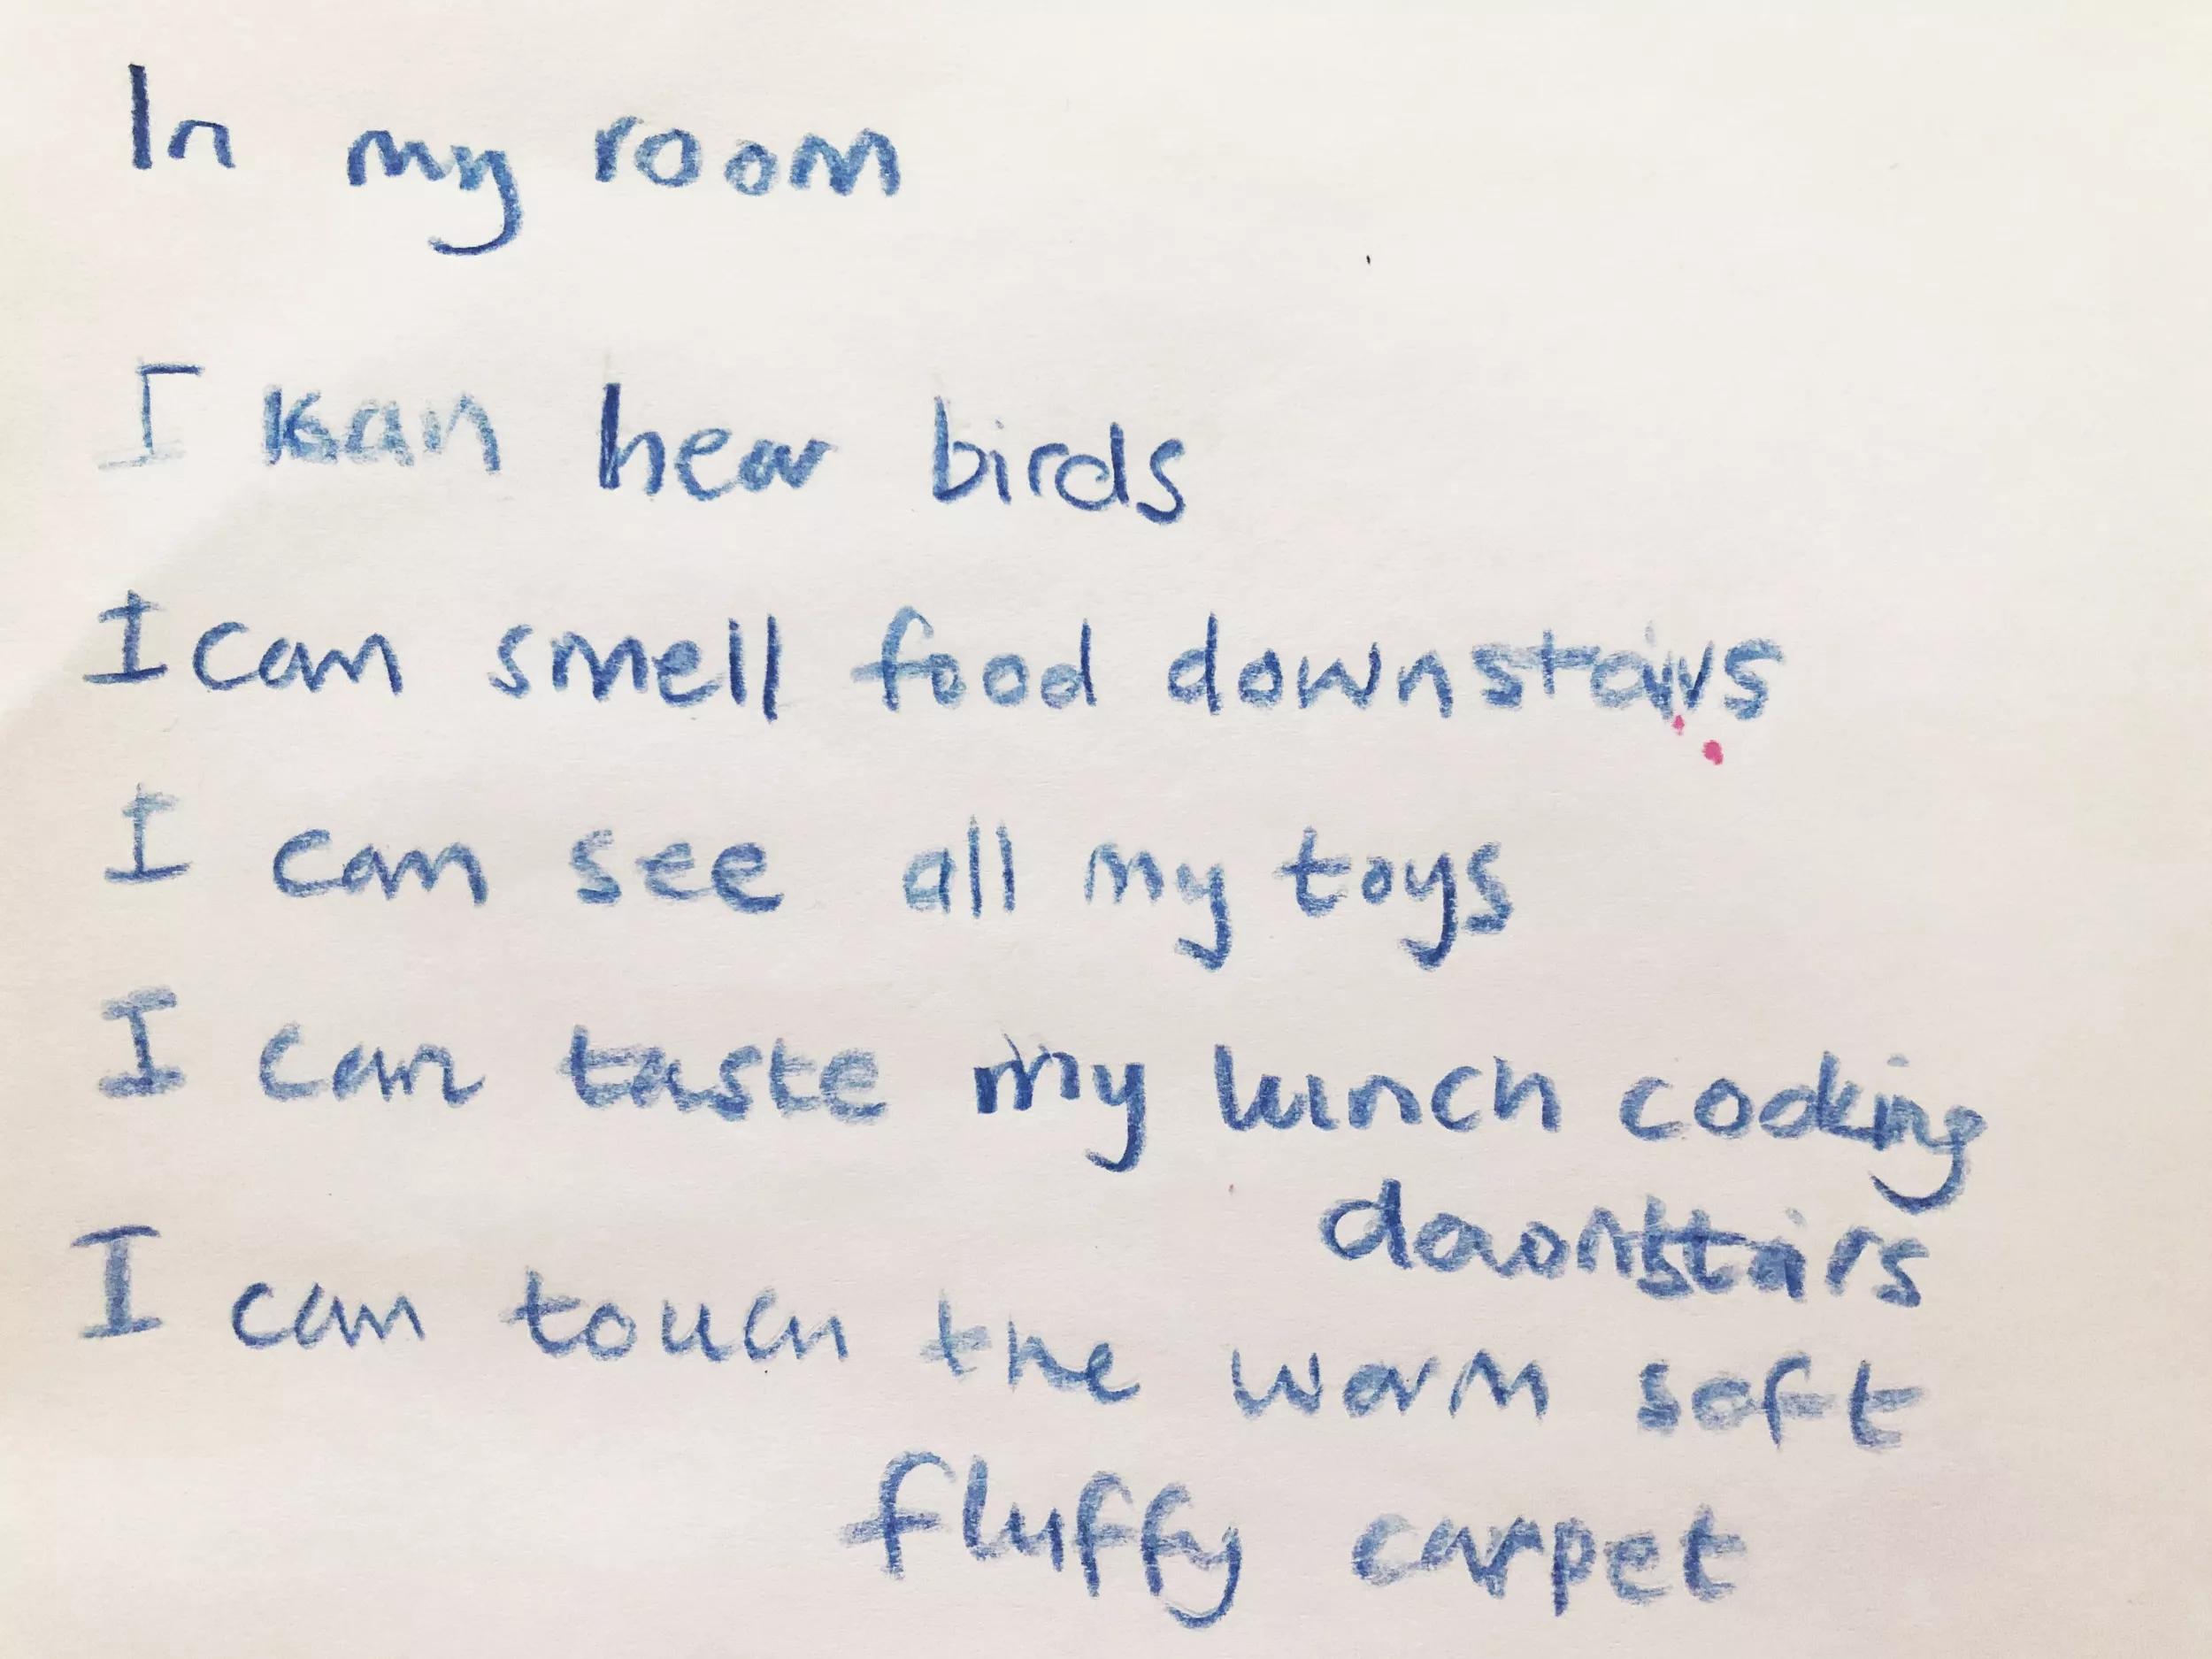 In my room
I kan hear birds
I can smell food downstairs
I can see all my toys
I can taste my lunch cooking
downstairs
I can touch the warm soft
fluffy carpet